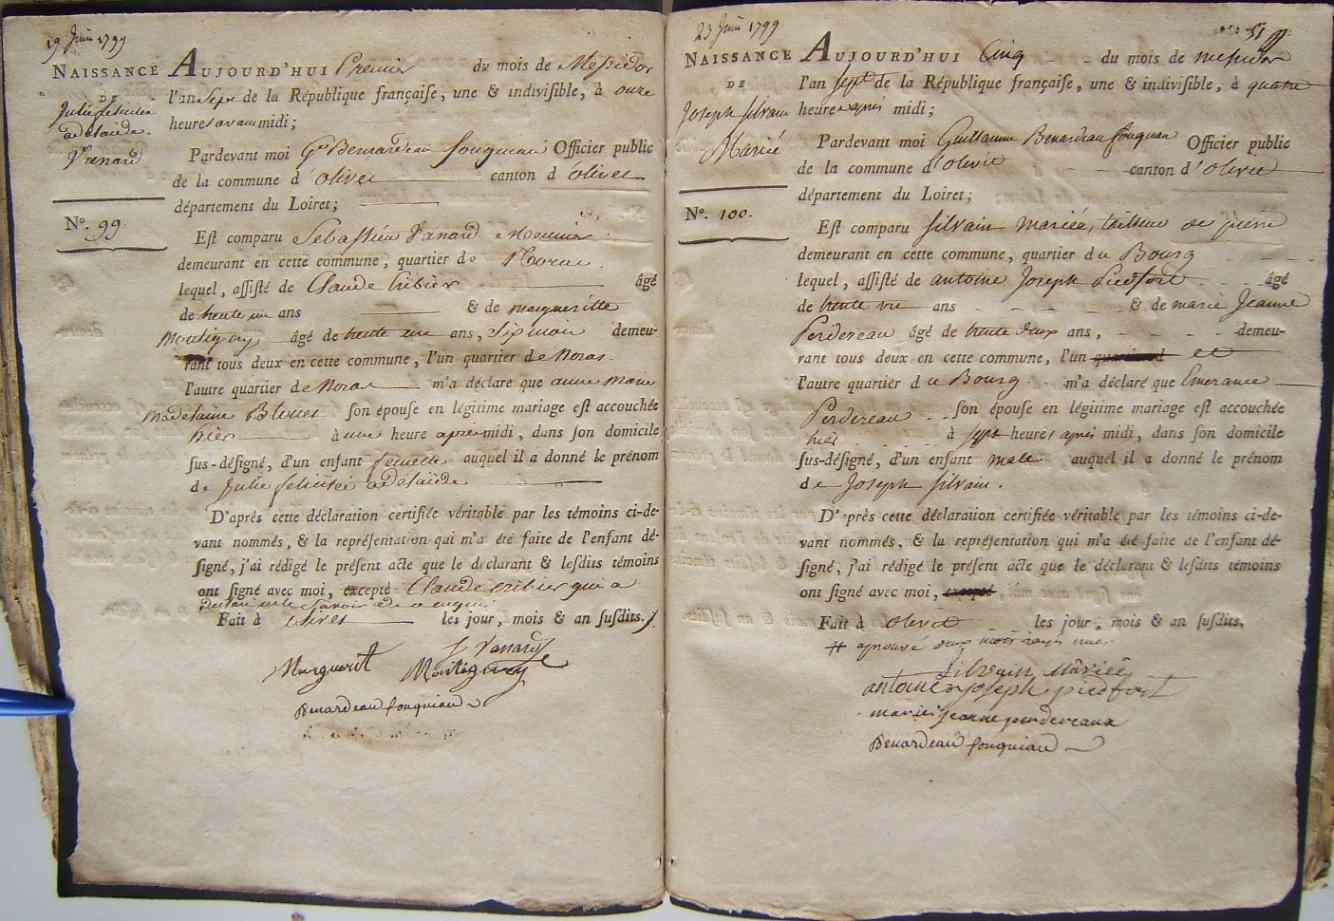 19 Juin 1799
NAISSANCE
DE
Julie félicitée
adelaide
Vanard
N.° 99
AUJOURD'HUI Premier du mois de Messidor
l'an Sept de la République françaiſe, une & indiviſible, à onze
heures avant midi;
Pardevant moi G. Benardeau fouquiau Officier public
de la commune d'olivet canton d'olivet
département du Loiret;
Eſt comparu Sebastien Vanard Meunier
demeurant en cette commune, quartier de Noras
lequel, aſſiſté de Claude tribier âgé
de trente un ans & de margueritte
Montigny âgé de trente une ans, six mois demeu-
rant tous deux en cette commune, l'un quartier de Noras
l'autre quartier de Noras m'a déclaré que anne marie
madelaine ſon épouſe en légitime mariage eſt accouchée
hier à une heure après midi, dans ſon domicile
ſus-déſigné, d'un enfant femelle auquel il a donné le prénom
de Julie felicitée adelaide
D'après cette déclaration certifiée véritable par les témoins ci-de-
vant nommés, & la repréſentation qui m'a été faite de l'enfant dé-
ſigné, j'ai rédigé le préſent acte que le déclarant & leſdits témoins
ont ſigné avec moi, excepté Claude tribier qui a
Fait à olivet les jour, mois & an ſuſdits.
S Vanard
Marguerit Montigny
Benardeau fouquiau
23 Juin 1799
51
NAISSANCE
DE
Joseph silvain
Mariée
N.° 100.
AUJOURD'HUI Cinq du mois de messidor
l'an sept de la République françaiſe, une & indiviſible, à quatre
heure après midi;
Pardevant moi Guillaume Benardeau fouquiau Officier public
de la commune d'olivet canton d'olivet
département du Loiret;
Eſt comparu silvain mariée, tailleur de pierre
demeurant en cette commune, quartier du Bourg
lequel, aſſiſté de antoine Joseph Piedfort âgé
de trente ans & de marie Jeanne
Perdereau âgé de trente deux ans, demeu-
rant tous deux en cette commune, l'un quartier d et
l'autre quartier du Bourg m'a déclaré que Emerance
Perdereau ſon épouſe en légitime mariage eſt accouchée
hier à sept heures après midi, dans ſon domicile
ſus-déſigné, d'un enfant male auquel il a donné le prénom
de Joseph silvain.
D'près cette déclaration certifiée véritable par les témoins ci-de-
vant nommés, & la repréſentation qui m'a été faite de l'enfant dé-
ſigné, j'ai rédigé le préſent acte que le déclarant & leſdits témoins
ont ſigné avec moi, excepté
Fait à olivet les jour, mois & an ſuſdits.
# aprouvé deux mots rayés nuls
silvain mariée
antoine joseph piedfort
marie jeanne perdereaux
Benardeau fouquiau